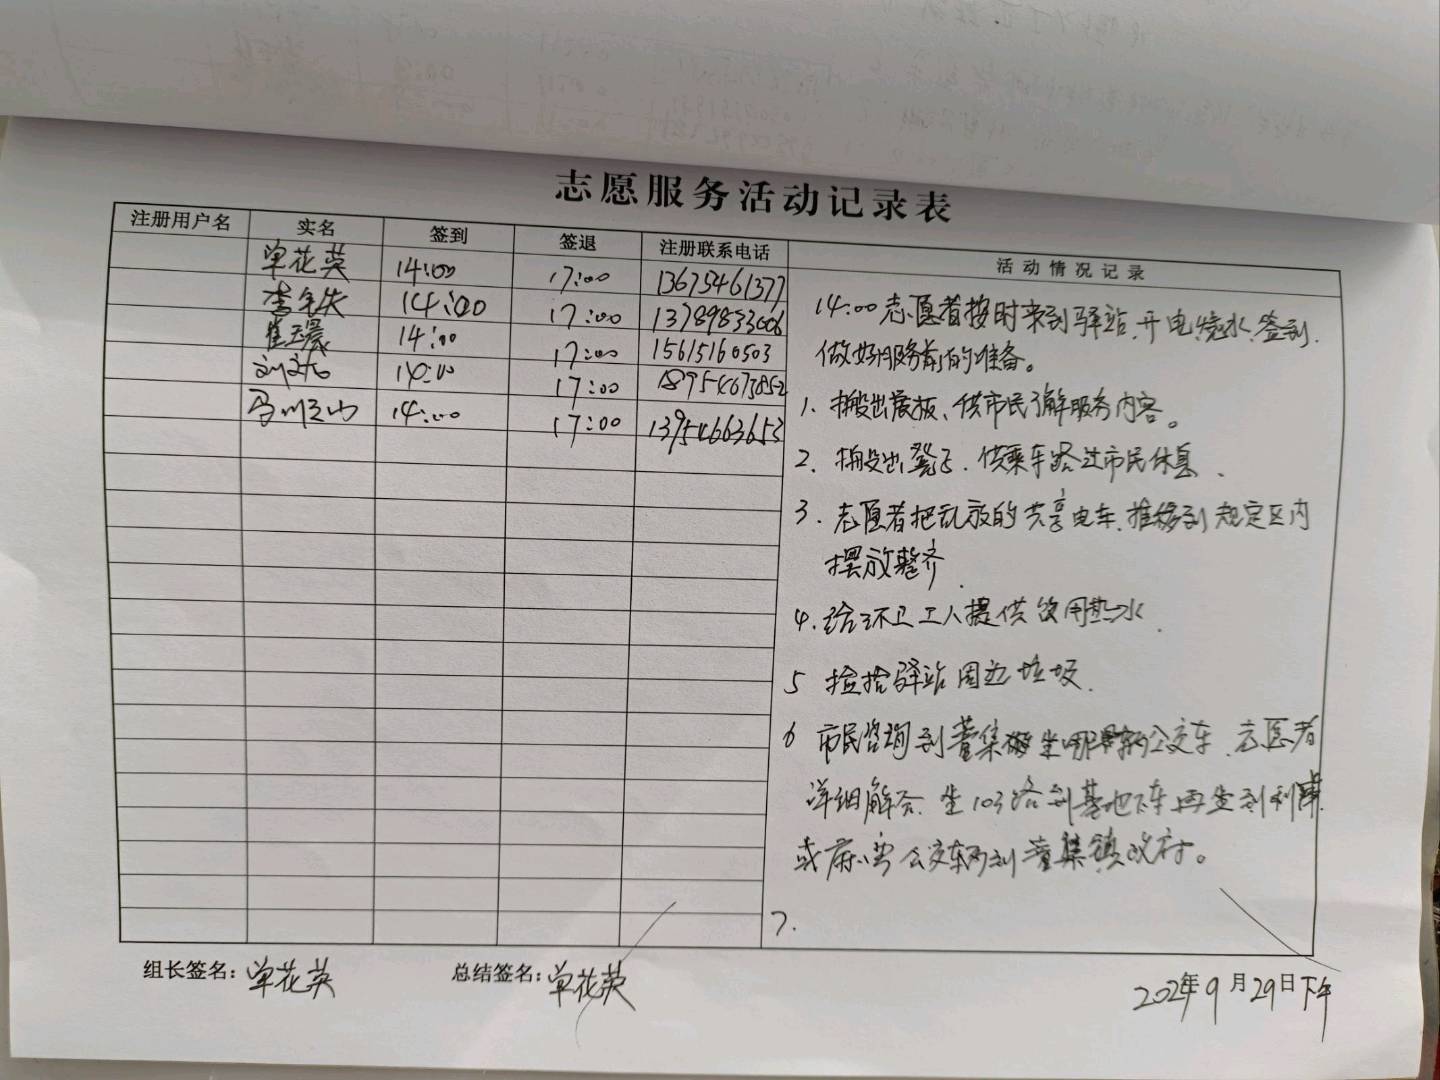 志愿服务活动记录表
注册用户名 实名 签到 签退 注册联系电话 活动情况记录
单花英 14:00 17:00 13675461377
李 14:00 17:00 13789833006
崔 14:00 17:00 15615160503
刘 14:00 17:00 18954673852
马 14:00 17:00 13954663653
14:00志愿者按时来到驿站,开电,烧水,签到,
做好服务前的准备。
1、搬出展板、供市民了解服务内容。
2、搬出凳子、供乘车路过市民休息、
3、志愿者把乱放的共享电车,推移到规定区内
摆放整齐、
4、给环卫工人提供饮用热水、
5 捡拾驿站周边垃圾、
6 市民咨询到董集坐哪公交车、志愿者
详细解答、坐103路到基地下车再坐到利
或公交车到董集镇政府。
7、
组长签名:单花英 总结签名:单花英
年9月29日下午